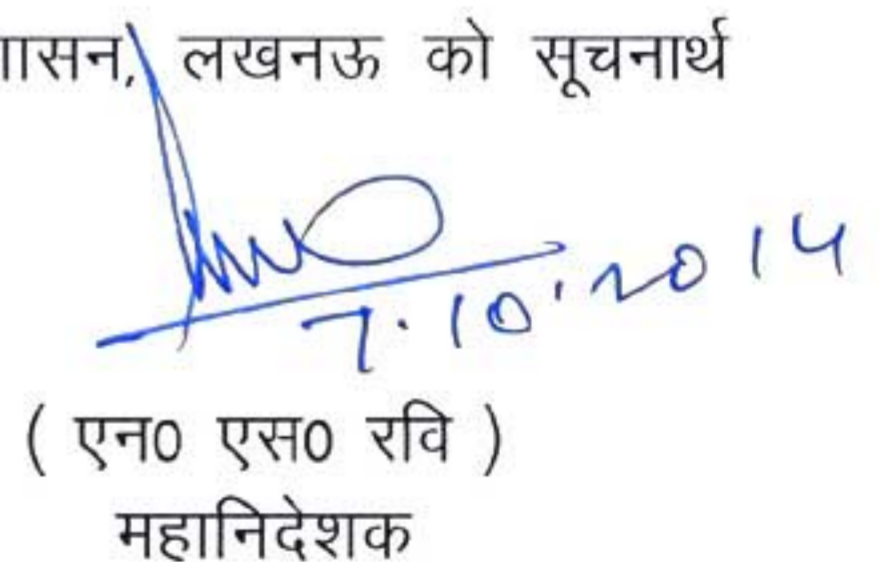 लखनऊ को सूचनार्थ
7.10.2014
( एन0 एस0 रवि )
महानिदेशक